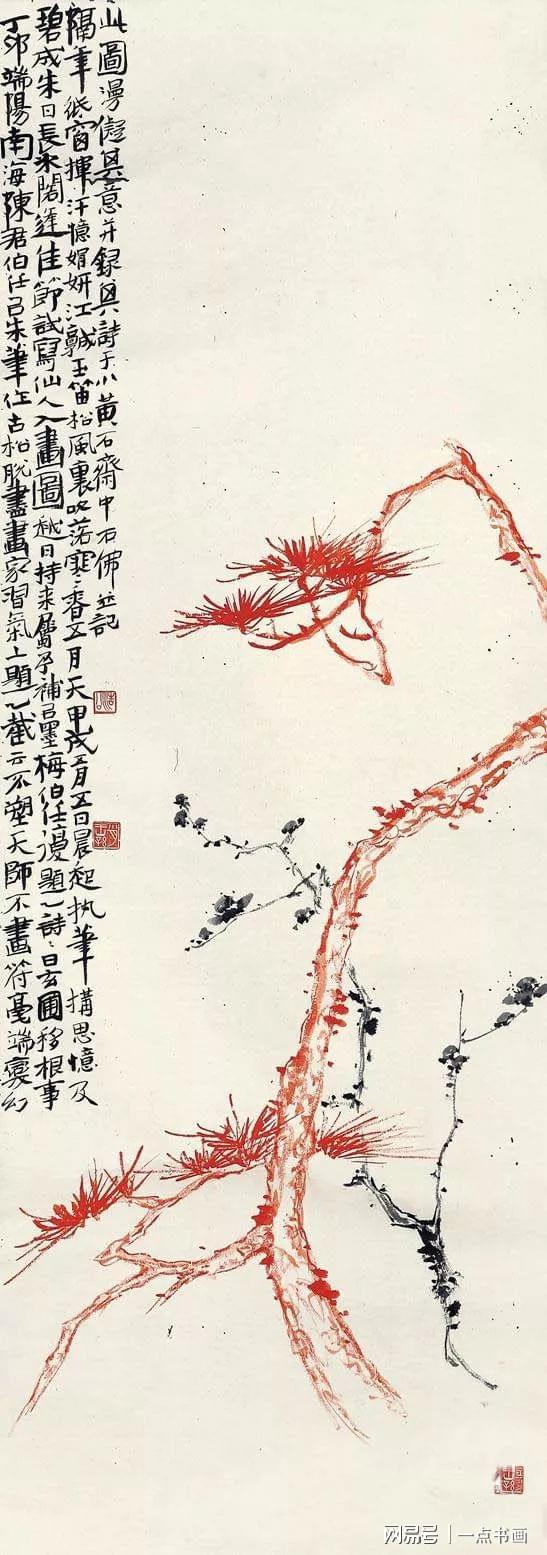 丁卯端陽南海陳君伯任以朱筆作古松脫盡畫家習氣上題一截云不塑天師不畫符毫端變幻
碧成朱日長水閣逢佳節試寫仙人入畫圖越日持來屬予補以墨梅伯任復題一詩〻曰玄圃移根事
隔年紙窗揮汗憶娟妍江城玉笛松風裏吹落寒香五月天甲戌五月五日晨起執筆構思憶及
此圖漫儗其意并錄其詩于小黃石齋中石佛並記
网易号 | 一点书画